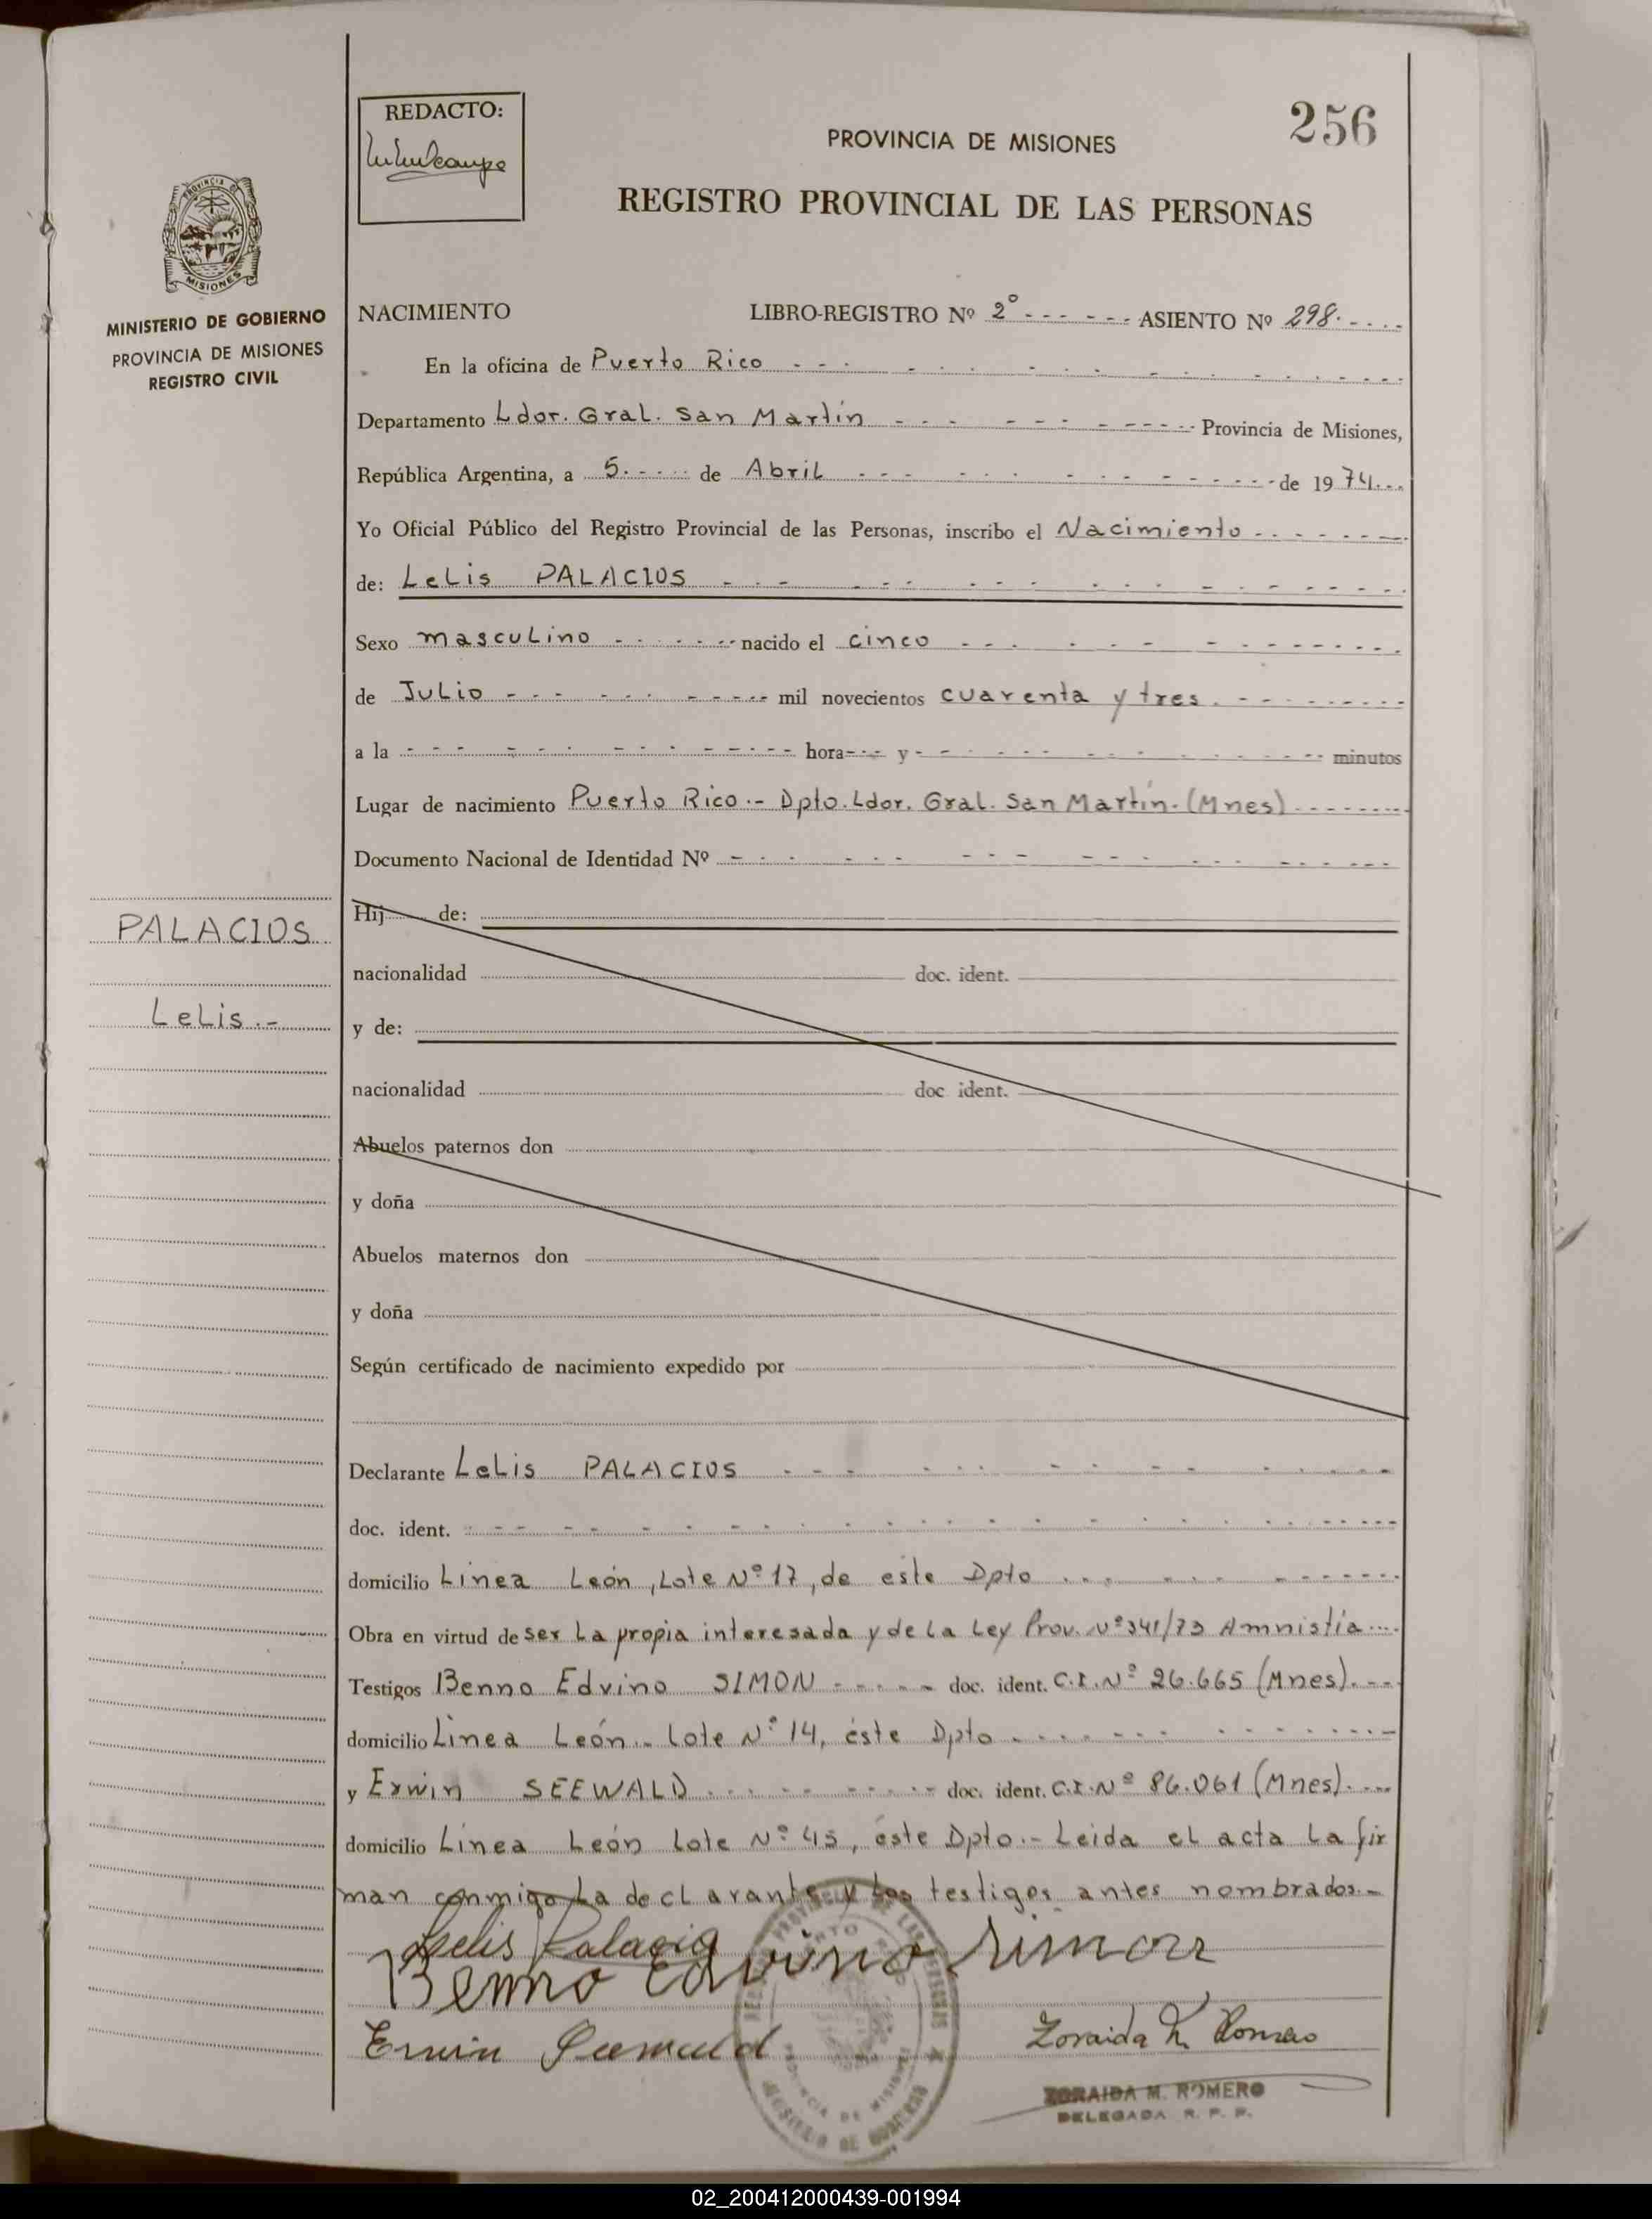 REDACTO:
256
PROVINCIA DE MISIONES
REGISTRO PROVINCIAL DE LAS PERSONAS
PROVINCIA DE
MISIONES
MINISTERIO DE GOBIERNO
PROVINCIA DE MISIONES
REGISTRO CIVIL
NACIMIENTO LIBRO-REGISTRO Nº 2º - - - - - - ASIENTO Nº 298. - - - -
En la oficina de Puerto Rico - - -
Departamento Ldor. Gral. San Martín - - - Provincia de Misiones,
República Argentina, a 5. - - - de Abril - - - de 1974...
Yo Oficial Público del Registro Provincial de las Personas, inscribo el Nacimiento - - -
de: Lelis PALACIOS - - -
Sexo masculino - - - nacido el cinco - - -
de Julio - - - mil novecientos cuarenta y tres. - - -
a la - - - hora - - - y - - - minutos
Lugar de nacimiento Puerto Rico.- Dpto. Ldor. Gral. San Martín. (Mnes) - - -
Documento Nacional de Identidad Nº - - -
PALACIOS
Lelis.-
Hij de:
nacionalidad doc. ident.
y de:
nacionalidad doc ident.
Abuelos paternos don
y doña
Abuelos maternos don
y doña
Según certificado de nacimiento expedido por
Declarante Lelis PALACIOS - - -
doc. ident. - - -
domicilio Línea León, Lote Nº 17, de este Dpto - - -
Obra en virtud de ser la propia interesada y de la Ley Prov. Nº 341/73 Amnistía ....
Testigos Benno Edvino SIMON - - - doc. ident. C.I. Nº 26.665 (Mnes). - - -
domicilio Línea León.. Lote Nº 14, éste Dpto - - -
y Erwin SEEWALD - - - doc. ident. C.I. Nº 86.061 (Mnes). - - -
domicilio Línea León Lote Nº 45, éste Dpto.- Leida el acta la fir
man conmigo la declarante y los testigos antes nombrados.-
Lelis Palacio
Benno Edvino Simon
Erwin Seewald
Zoraida M. Romero
ZORAIDA M. ROMERO
DELEGADA R. P. P.
02_200412000439-001994